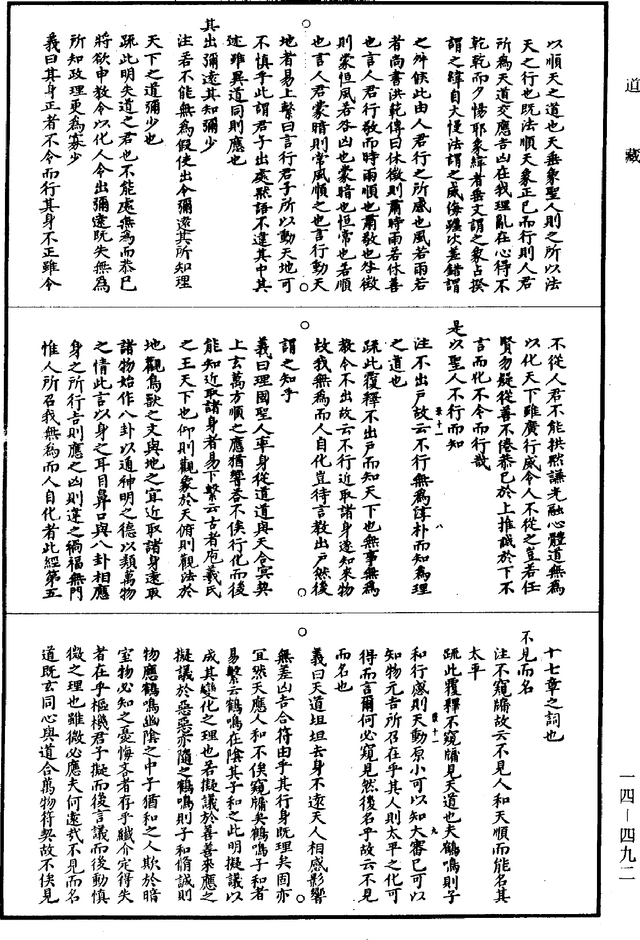 道藏
以順天之道也天垂象聖人則之所以法
天之行也既法順天象正已而行則人君
所為天道交應吉凶在我理亂在心得不
乾乾而夕惕耶象緯者垂文謂之象占揆
謂之緯自大慢法謂之威侮躔次差錯謂
之外候此由人君行之所感也風若雨若
者尚書洪範傳曰休徵則肅時雨若休善
也言人君行敬而時雨順也肅敬也咎徵
則蒙恒風若咎凶也蒙暗也恒常也若順
也言人君蒙暗則常風順之也言行動天
地者易上繫曰言行君子所以動天地可
不慎乎此謂君子出處默語不違其中其
述雖異道同則應也
其出彌遠其知彌少
注若不能無為假使出令彌遠其所知理
天下之道彌少也
疏此明失道之君也不能處無為而恭已
將欲申教令以化人令出彌遠既失無為
所知政理更為寡少
義曰其身正者不令而行其身不正雖令
不從人君不能拱默謙光融心體道無為
以化天下雖廣行威令人不從之豈若任
賢勿疑從善不倦恭已於上推誠於下不
言而化不令而行哉
是以聖人不行而知
注不出戶故云不行無為淳朴而知為理
之道也
疏此覆釋不出戶而知天下也無事無為
教令不出故云不行近取諸身遂知來物
故我無為而人自化豈待言教出戶然後
謂之知乎
義曰理國聖人率身從道道與天合冥契
上玄萬方順之應猶響荅不俟行化而後
能知近取諸身者易下繫云古者庖羲氏
之王天下也仰則觀象於天俯則觀法於
地觀鳥獸之文與地之宜近取諸身遠取
諸物始作八卦以通神明之德以類萬物
之情此言以身之耳目鼻口與八卦相應
身之所行吉則應之凶則違之禍福無門
惟人所召我無為而人自化者此經第五
十七章之詞也
不見而名
注不窺牖故云不見人和天順而能名其
太平
疏此覆釋不窺牖見天道也夫鶴鳴則子
和行感則天動原小可以知大審已可以
知物元吉所召在乎其人則太平之化可
得而言爾何必窺見然後名乎故云不見
而名也
義曰天道坦坦去身不遠天人相感影響
無差凶吉合符由乎其行身既理矣固亦
宜然天應人和不俟窺牖矣鶴鳴子和者
易繫云鶴鳴在陰其子和之此明擬議以
成其變化之理也若擬議於善善來應之
擬議於惡惡亦隨之鶴鳴則子和脩誠則
物應鶴鳴幽陰之中子猶和之人欺於暗
室物必知之憂悔吝者存乎纖介定得失
者在乎樞機君子擬而後言議而後動慎
微之理也雖微必應夫何遠哉不見而名
道既玄同心與道合萬物符契故不俟見
一四－四九二